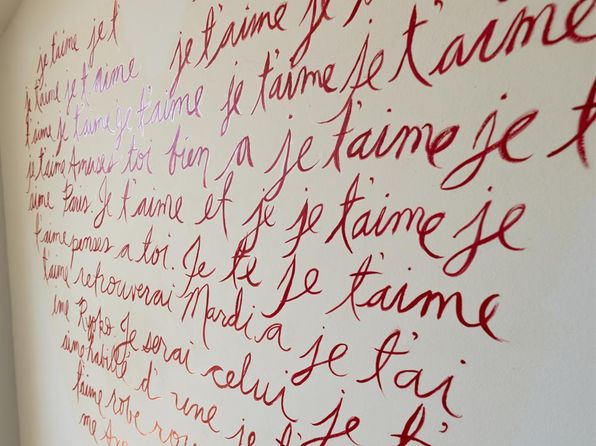 je t'aime je t je t'aime je
je t'aime je t'aime je t'aime je t'aime
t'aime je t'aime je t'aime je t'aime je t'aime
je t'aime Amuses toi bien a je t'aime je t
aime Paris. Je t'aime et je je t'aime je
t'aime penses a toi. Je te je t'aime
t'aime retrouverai Mardi a je t'ai
ime Ryoko. Je serai celui je t'
aime habillé d'une je t'
t'aime robe rou
me